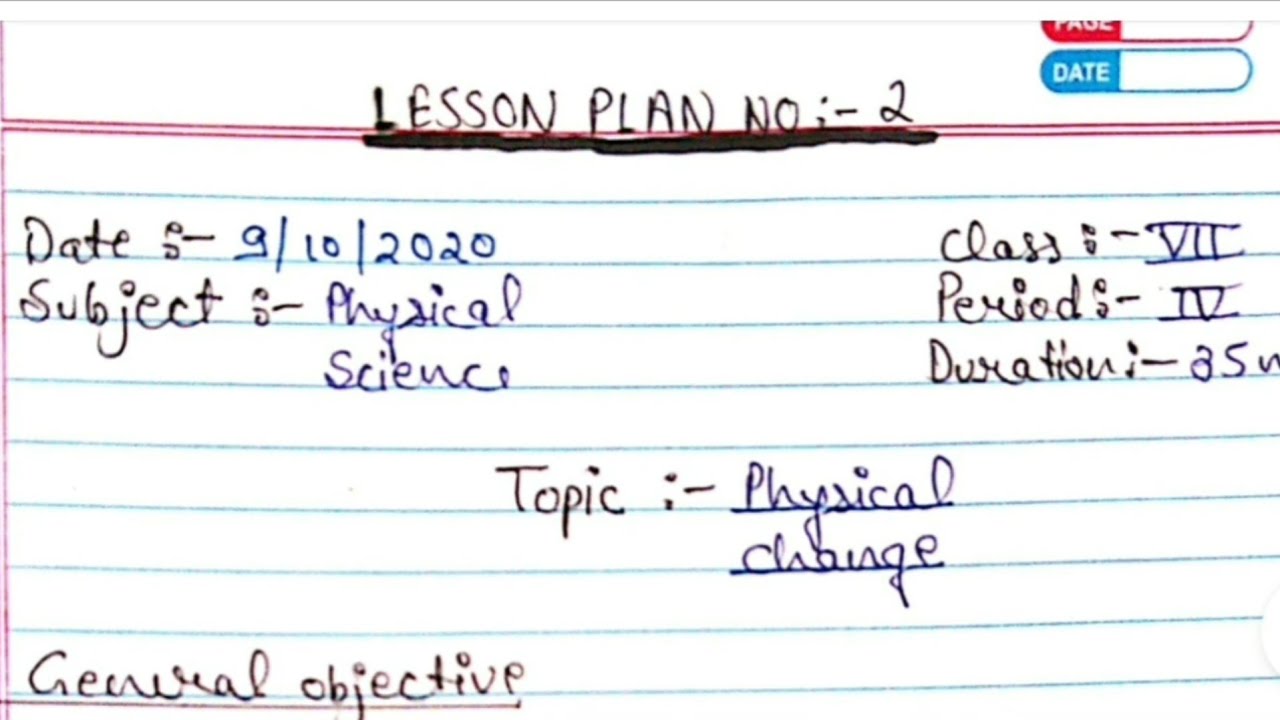 PAGE
DATE
LESSON PLAN NO :- 2
Date :- 9/10/2020
Class :- VII
Subject :- Physical
Period :- IV
Science
Duration :- 35
Topic :- Physical
change
General objective